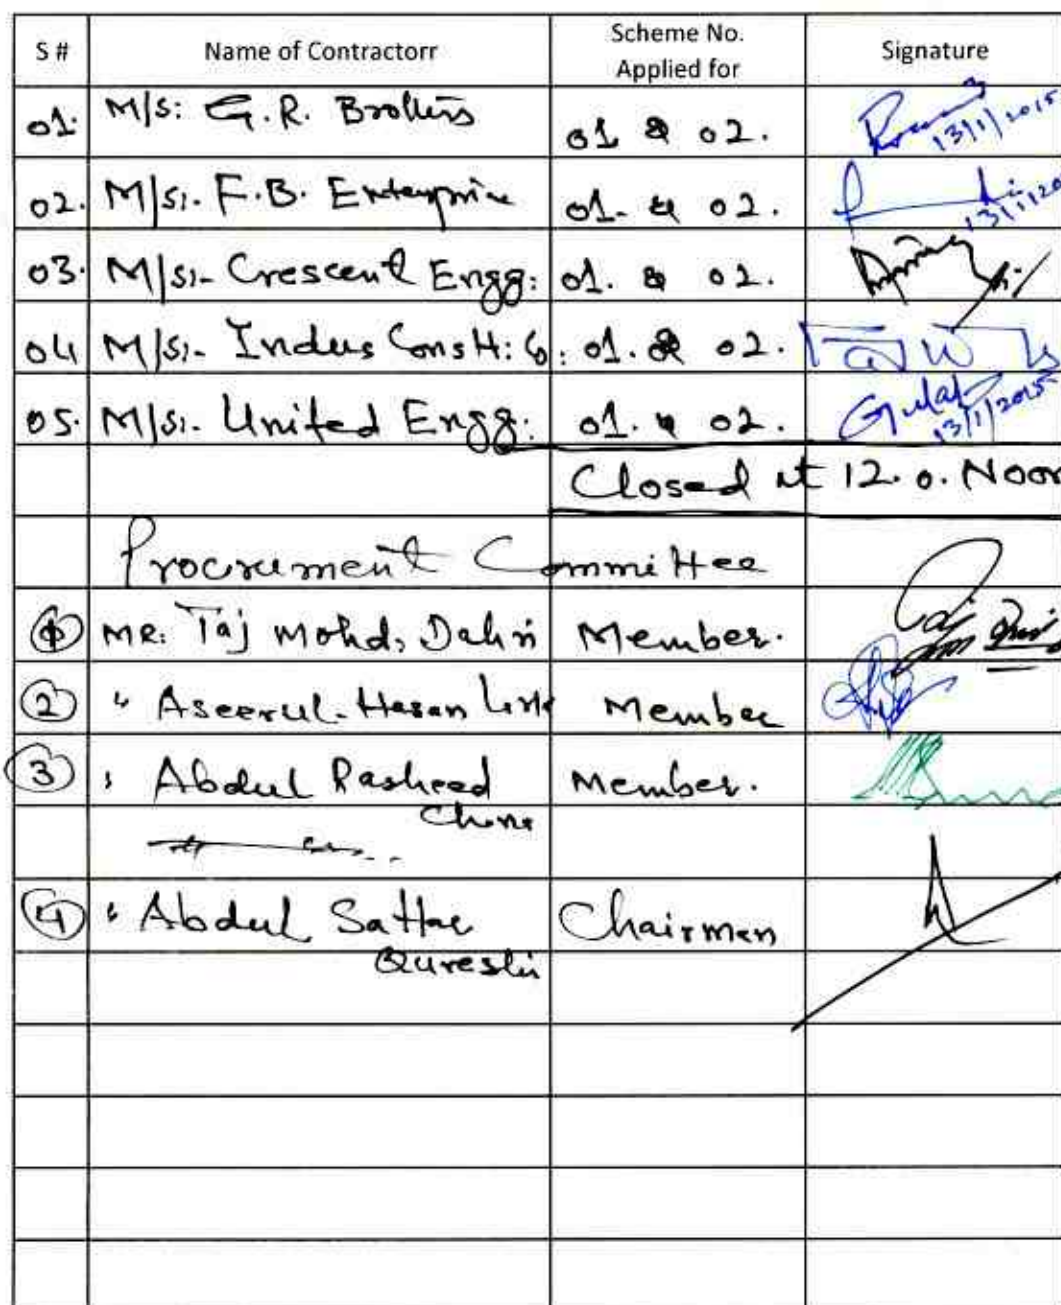 S # Name of Contractorr Scheme No. Applied for Signature
01. M/s: G.R. Brothers 01 & 02. 13/1/2015
02. M/s:- F.B. Enterprise 01. & 02. 13/1/20
03. M/s:- Crescent Engg: 01. & 02.
04 M/s:- Indus Constt: Co: 01. & 02.
05. M/s:- United Engg: 01. & 02. Gulab 13/1/2015
Closed at 12. o. Noon
Procurement Committee
1 MR. Taj Mohd, Dahri Member.
2 " Aseerul-Hasan Member
3 " Abdul Rasheed Member.
4 " Abdul Sattar Chairman
Qureshi